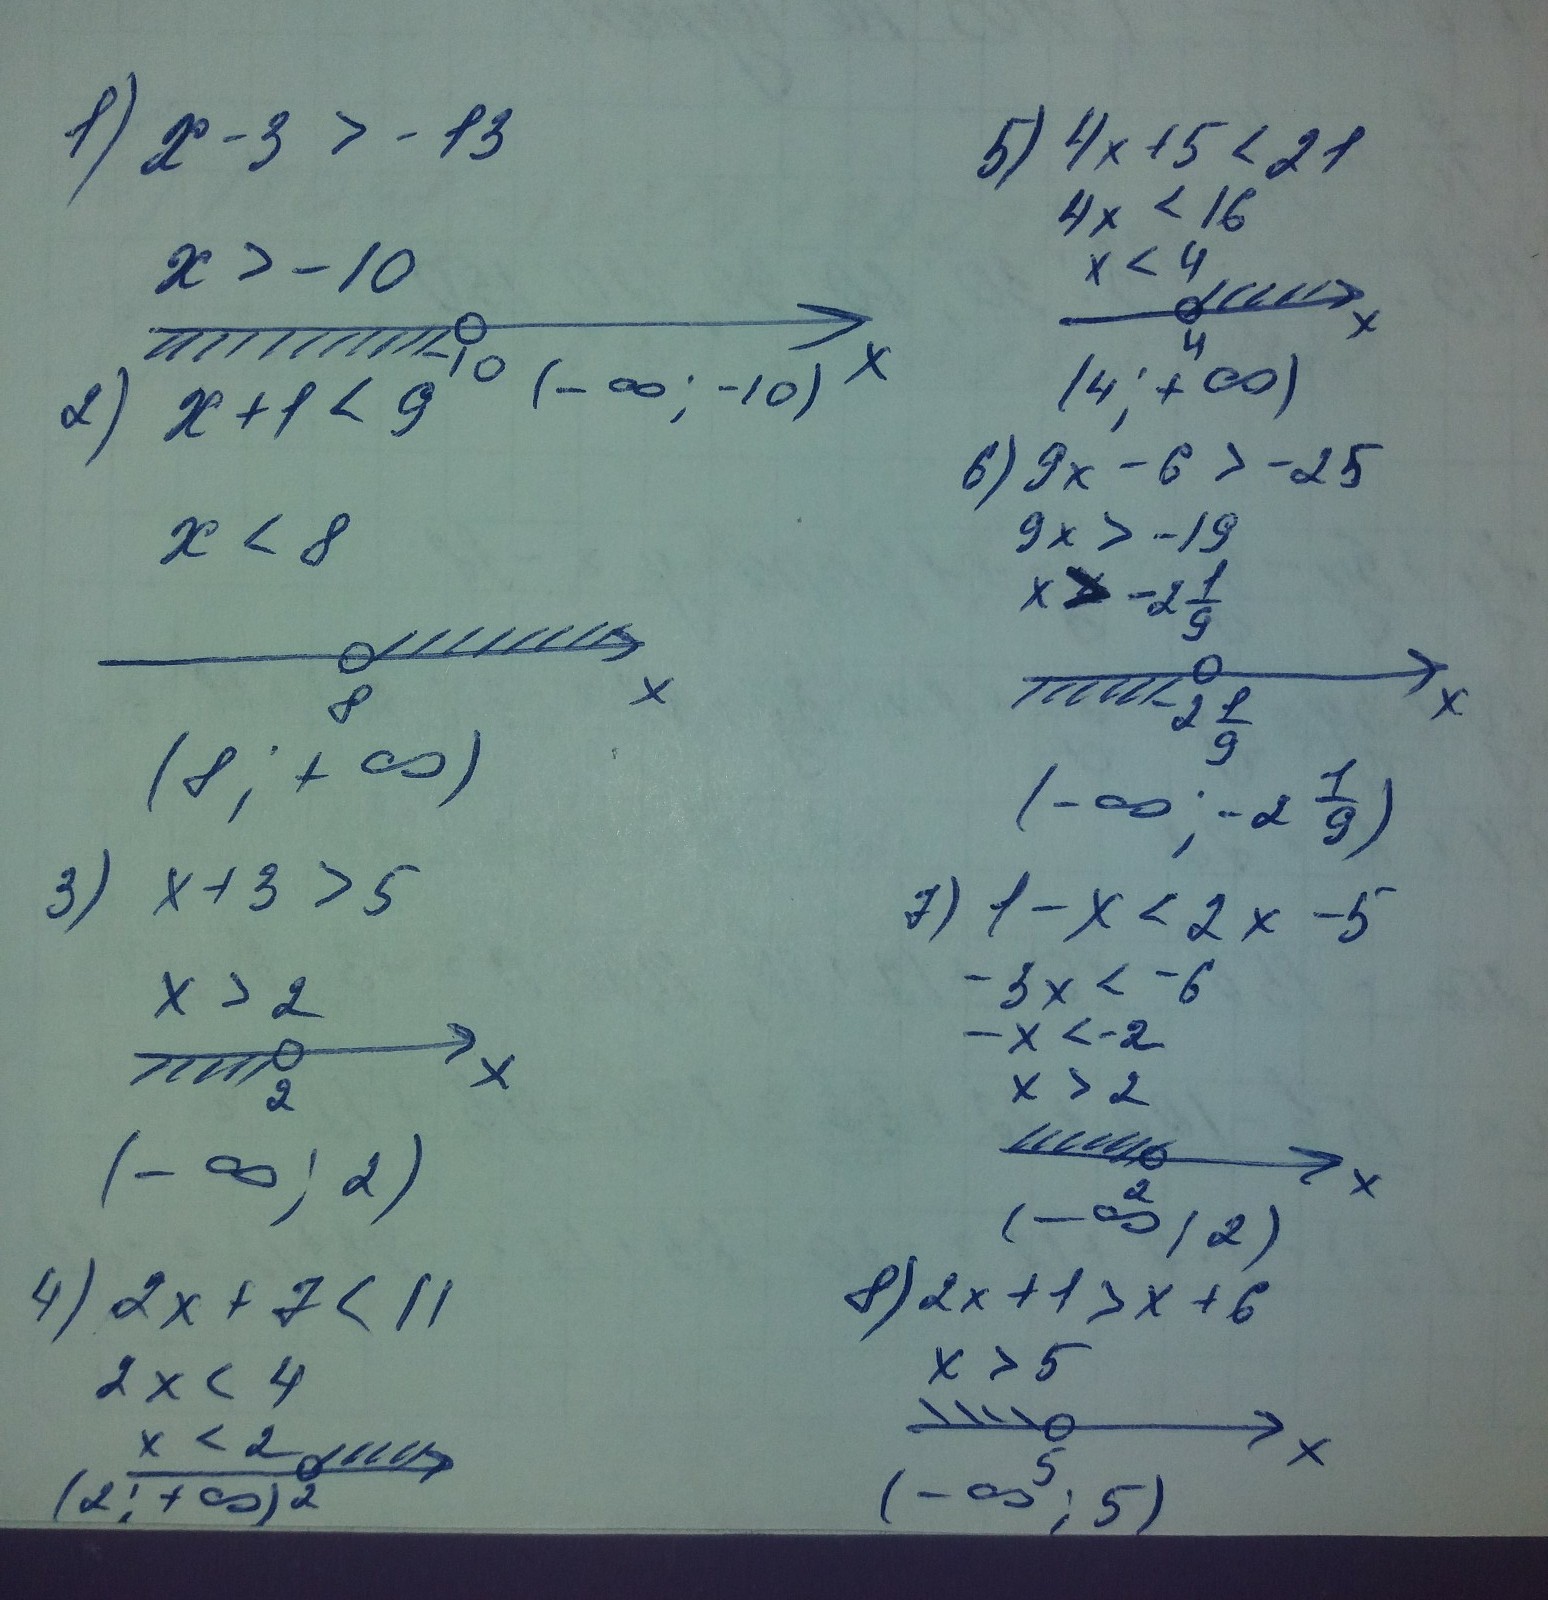 1) x - 3 > -13
x > -10
-10
x
(-∞; -10)
2) x + 1 < 9
x < 8
8
x
(8; +∞)
3) x + 3 > 5
x > 2
2
x
(-∞; 2)
4) 2x + 7 < 11
2x < 4
x < 2
2
(2; +∞)
5) 4x + 5 < 21
4x < 16
x < 4
4
x
(4; +∞)
6) 9x - 6 > -25
9x > -19
x > -2 1/9
-2 1/9
x
(-∞; -2 1/9)
7) 1 - x < 2x - 5
-3x < -6
-x < -2
x > 2
2
x
(-∞; 2)
8) 2x + 1 > x + 6
x > 5
5
x
(-∞; 5)